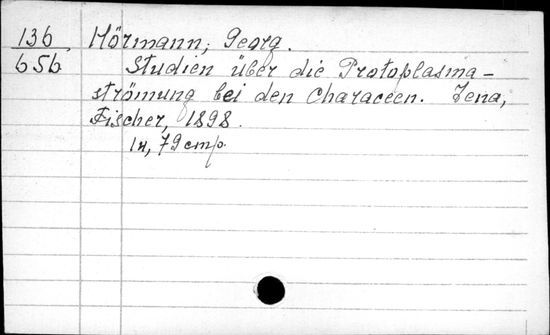 136 Hörmann, Georg.
656 Studien über die Protoplasma-
strömung bei den Characeen. Jena,
Fischer, 1898.
79 стр.